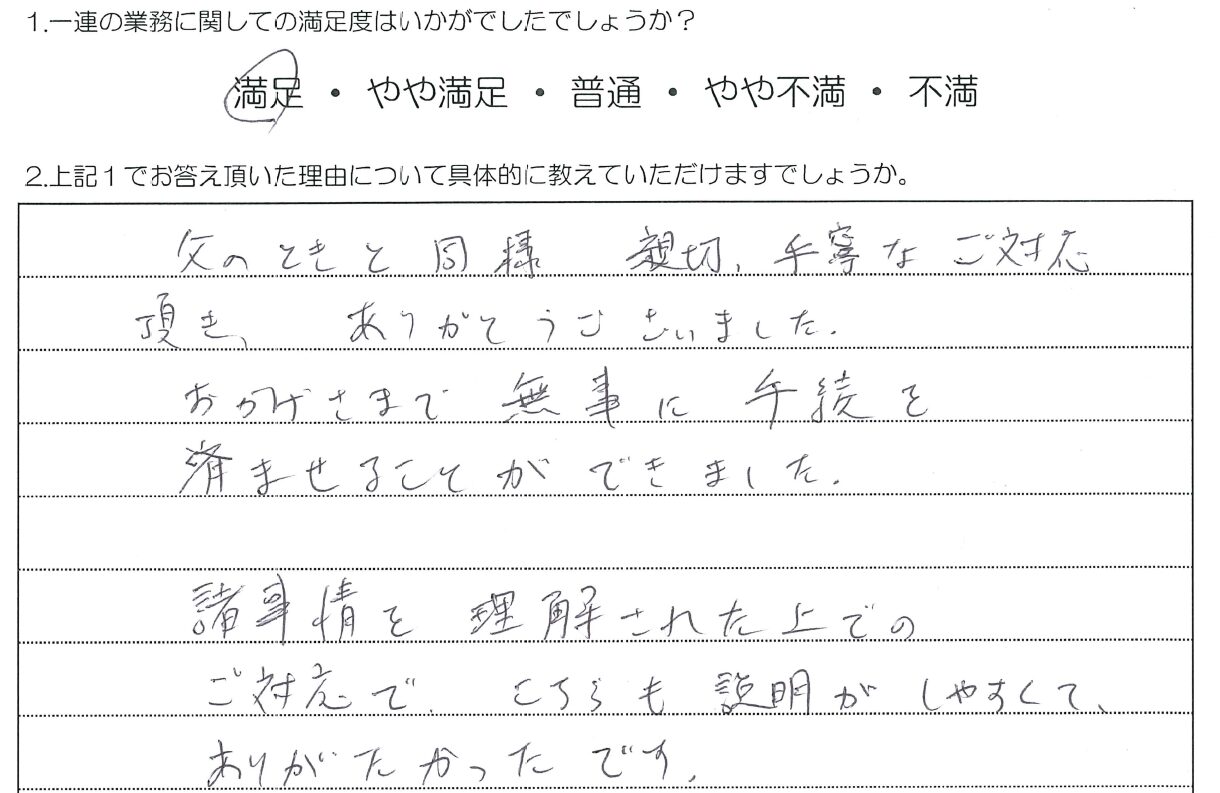 1.一連の業務に関しての満足度はいかがでしたでしょうか？
満足・やや満足・普通・やや不満・不満
2.上記１でお答え頂いた理由について具体的に教えていただけますでしょうか。
父のときと同様 親切、丁寧なご対応
頂き、ありがとうございました。
おかげさまで無事に手続を
済ませることができました。
諸事情を理解された上での
ご対応で、こちらも説明がしやすくて、
ありがたかったです。